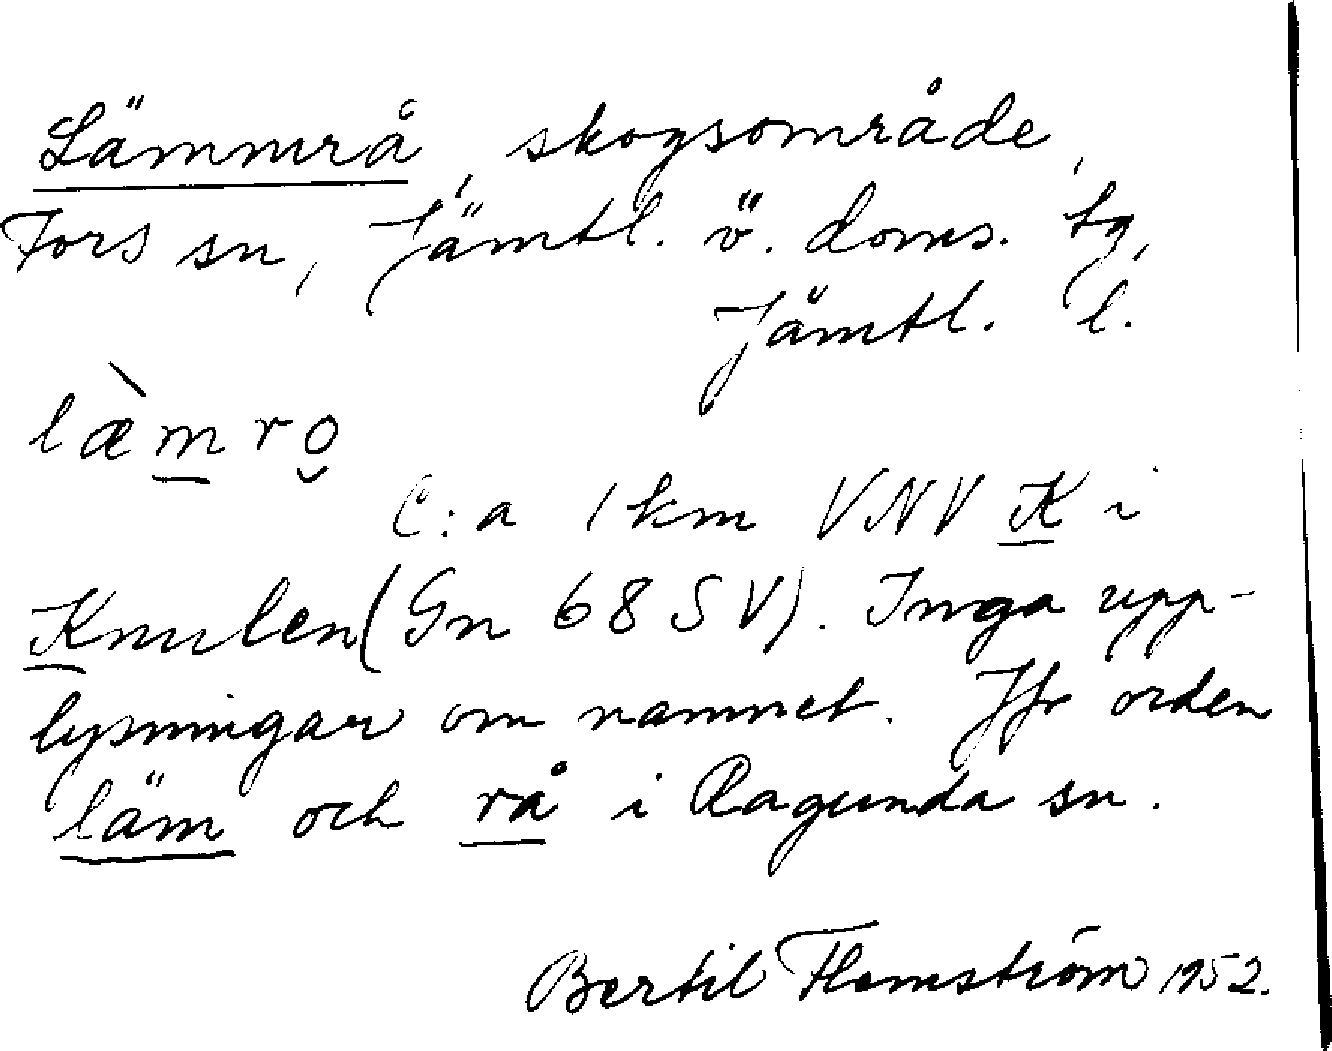 Lämmrå, skogsområde,
Fors sn, Jämtl. ö. doms. tg,
Jämtl. l.
læ̀m̲ro̬
C:a 1 km VNV K i
Knulen (Gn 68 SV). Inga upp-
lysningar om namnet. Jfr orden
läm och rå i Ragunda sn.
Bertil Flemström 1952.